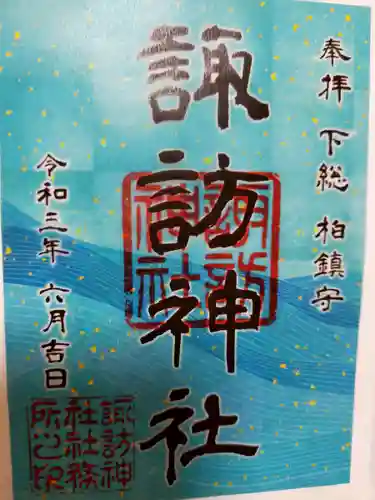 奉拝 下総 柏鎮守
諏訪神社
諏訪神社
令和三年 六月吉日
諏訪神
社社務
所之印